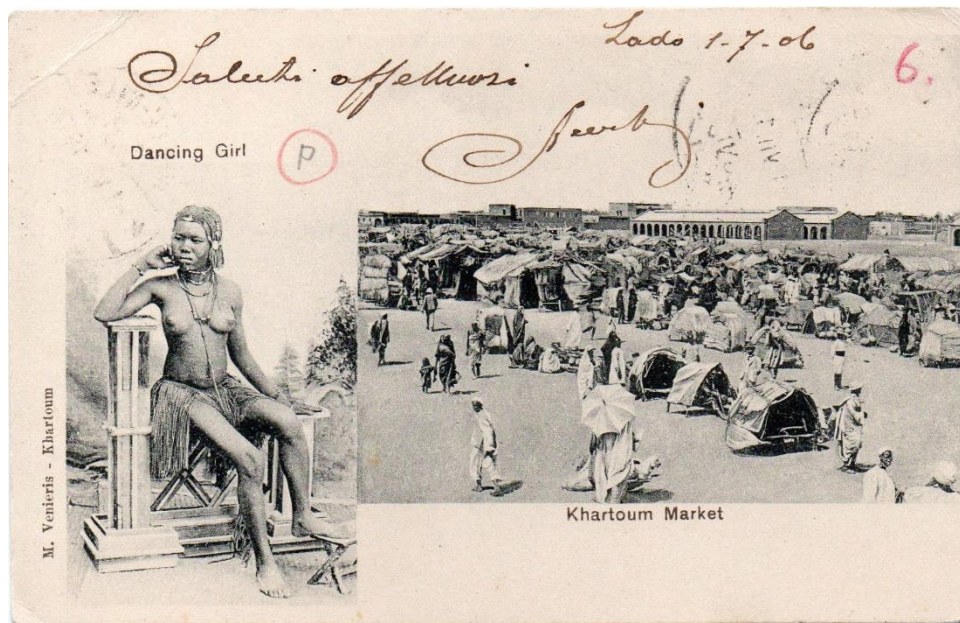 Lado 1-7-06
6.
Saluti affettuosi
Dancing Girl
P
M. Venieris - Khartoum
Khartoum Market